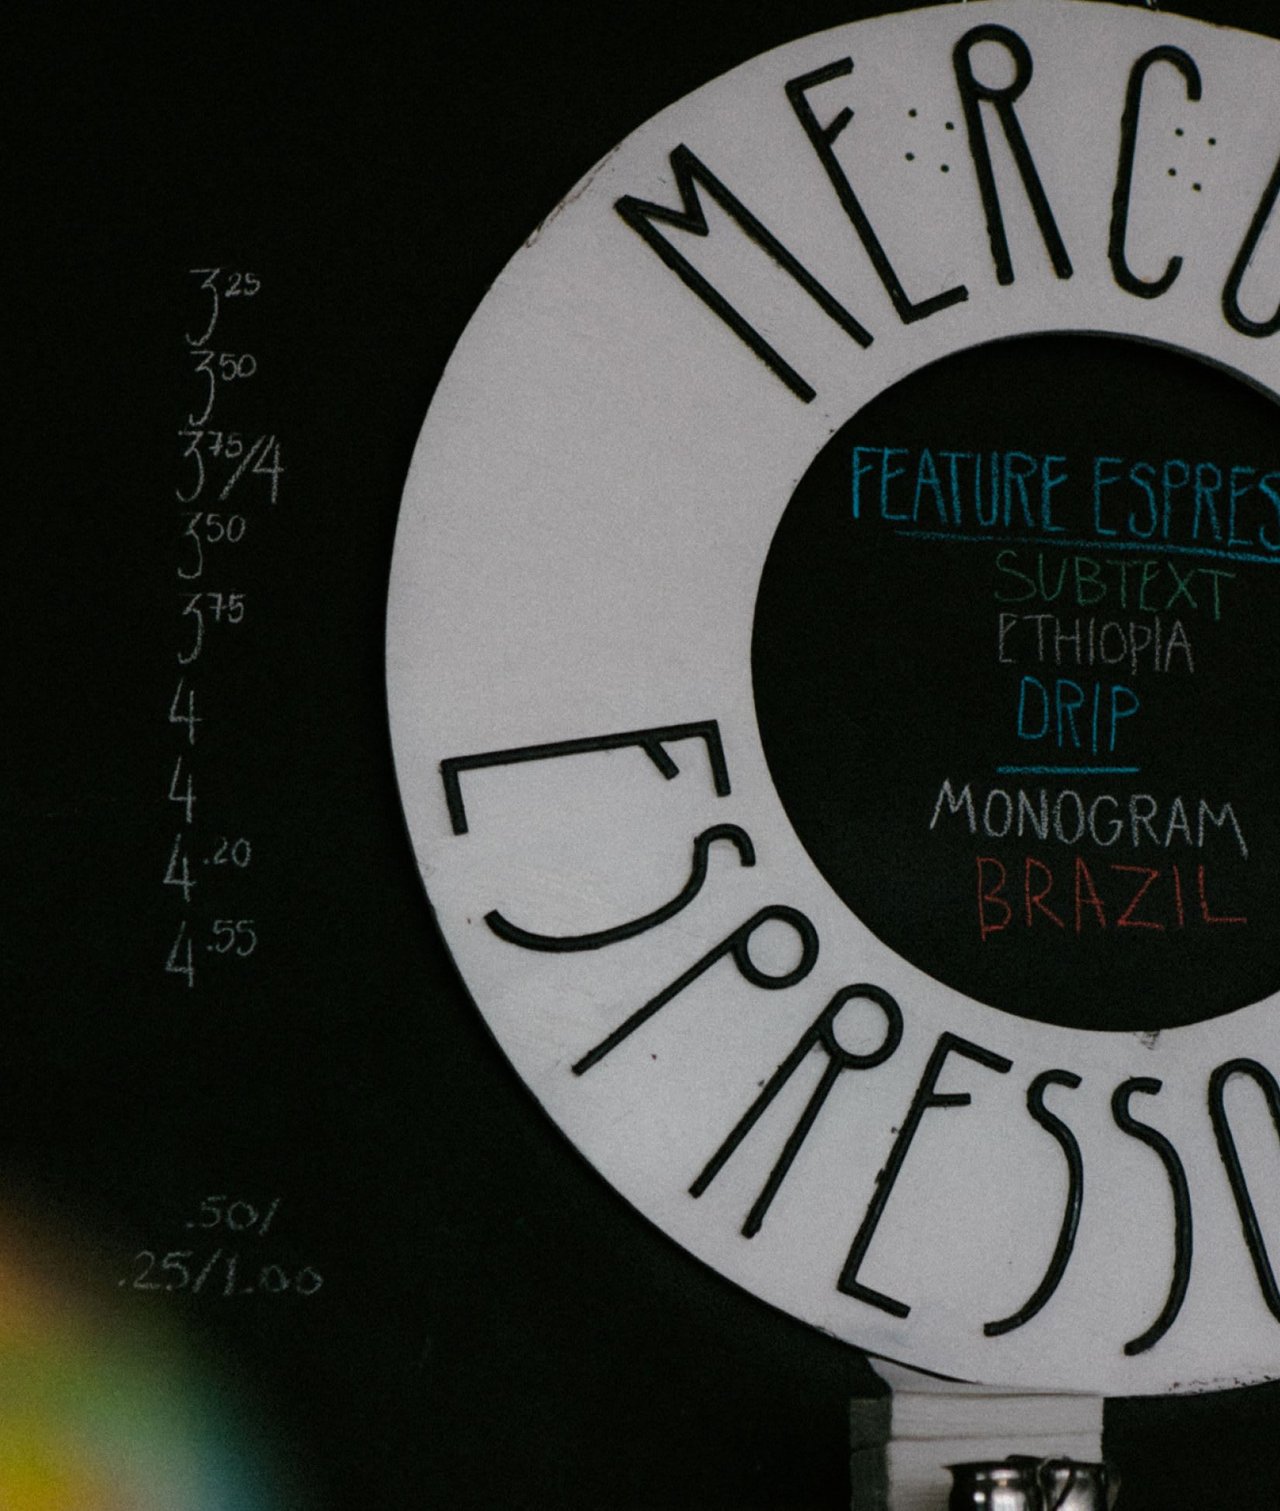 3.25
3.50
3.75/4
3.50
3.75
4
4
4.20
4.55
.50/
.25/1.00
MERCU
FEATURE ESPRES
SUBTEXT
ETHIOPIA
DRIP
MONOGRAM
BRAZIL
ESPRESSO